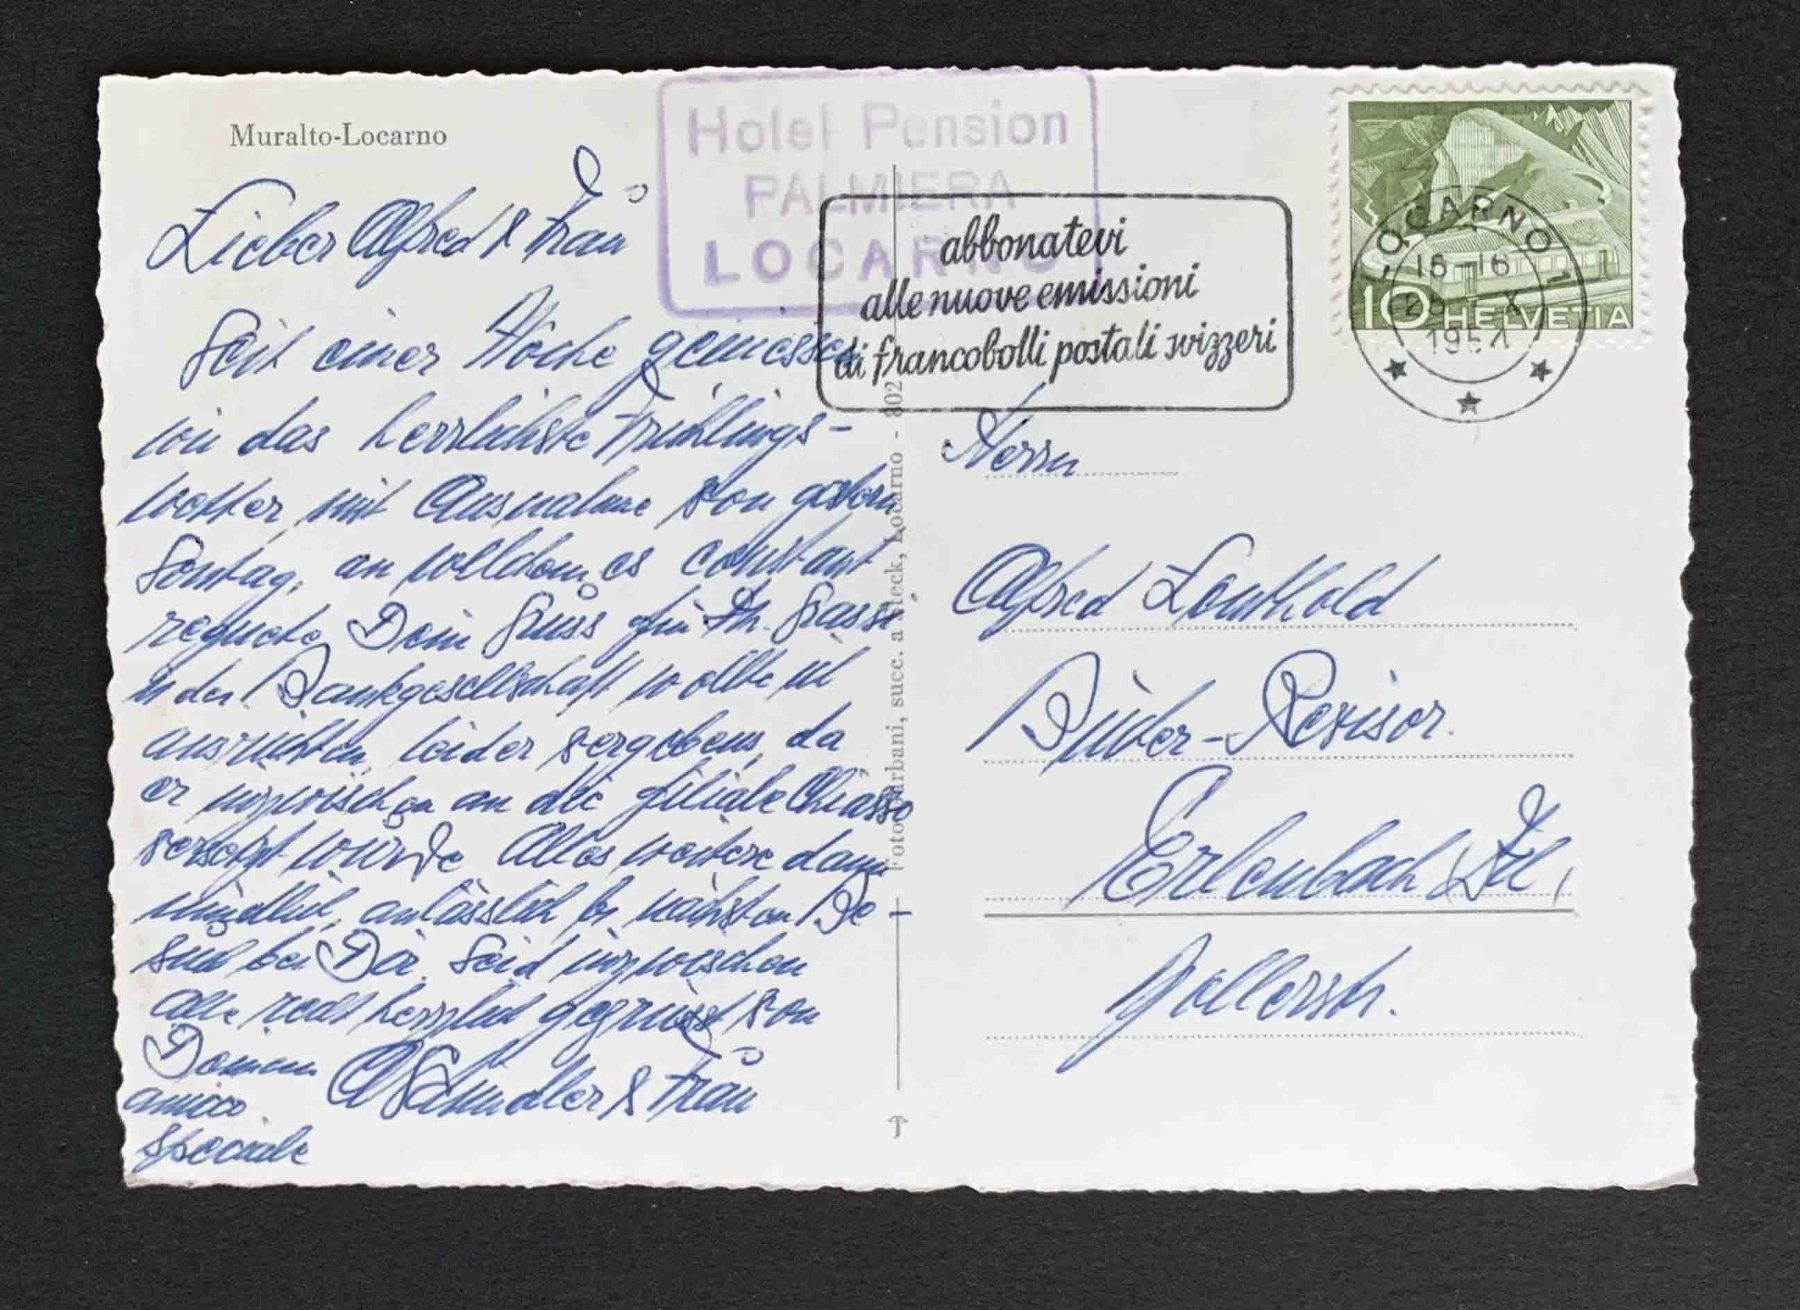 Muralto-Locarno
Hotel Pension
PALMIERA
LOCARNO
abbonatevi
alle nuove emissioni
di francobolli postali svizzeri
LOCARNO 1
16-16
X
1954
10 HELVETIA
Lieber Alfred & Frau
Seit einer Woche geniessen
wir das herrlichste Frühlings-
wetter, mit Ausnahme von gestern
Sontag, an welchem es constant
regnete. Dein Gruss für Hr. Grassi
in der Bankgesellschaft wollte ich
ausrichten, leider vergebens, da
er inzwischen an die Filiale Chiasso
versetzt wurde. Alles weitere dann
mündlich, anlässlich nächsten Be-
such bei Dir. Seid inzwischen
Alle recht herzlich gegrüsst von
Deinem
amico
speciale
A Schindler & Frau
Foto Garbani, succ. a Steck, Locarno - 802
Herrn
Alfred Leuthold
Bücher-Revisor.
Erlenbach Zh,
Zollerstr.